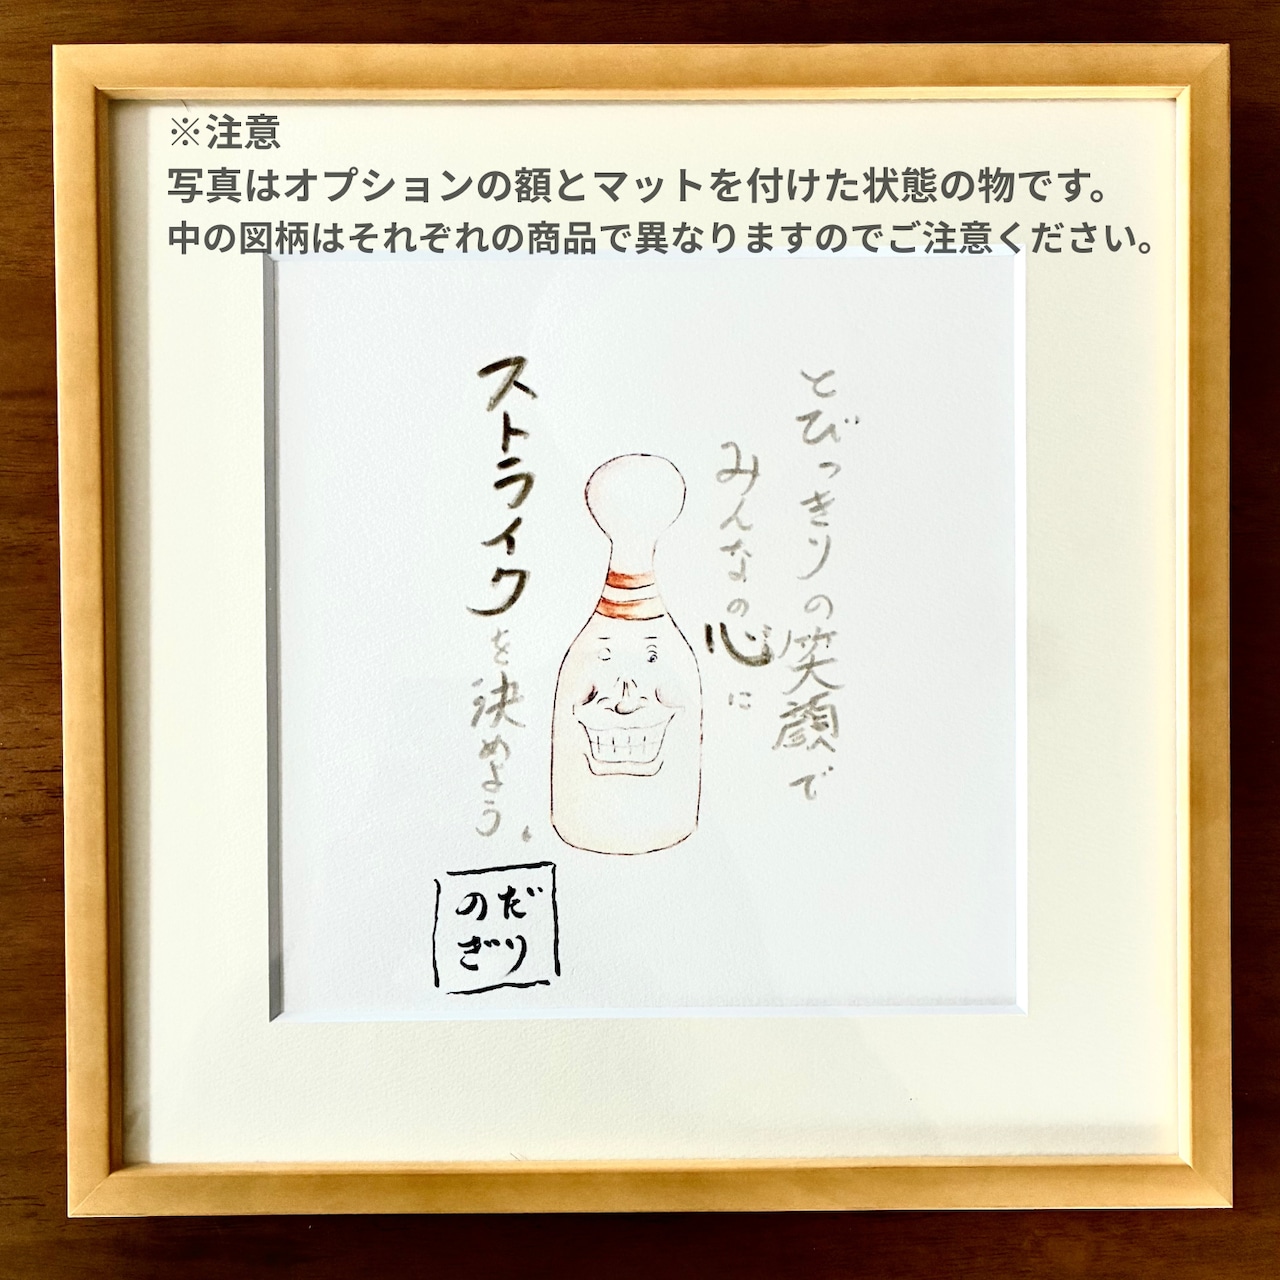 ※注意
写真はオプションの額とマットを付けた状態の物です。
中の図柄はそれぞれの商品で異なりますのでご注意ください。
とびっきりの笑顔で
みんなの心に
ストライクを決めよう。
だり
のざ